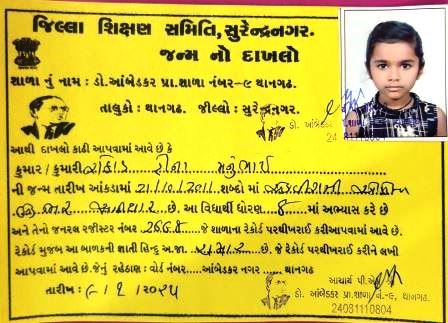 જિલ્લા શિક્ષણ સમિતિ,સુરેન્દ્રનગર.
જન્મ નો દાખલો
શાળા નું નામ : ડો.આંબેડકર પ્રા.શાળા નંબર-૯ થાનગઢ.
તાલુકો : થાનગઢ. જીલ્લો : સુરેન્દ્રનગર.
ડો. આંબેડકર
24081110804
આથી દાખલો કાઢી આપવામાં આવે છે કે
કુમાર / કુમારી રીના મનુભાઈ
ની જન્મ તારીખ આંકડામાં 21/10/2011 શબ્દો માં
છે. આ વિદ્યાર્થી ધોરણ ૪ માં અભ્યાસ કરે છે
અને તેનો જનરલ રજીસ્ટર નંબર 2668 જે શાળાના રેકોર્ડ પરથીખરાઈ કરીઆપવામાં આવે છે.
રેકોર્ડ મુજબ આ બાળકની જ્ઞાતી હિન્દુ અ.જા. છે. જે રેકોર્ડ પરથીખરાઈ કરીને લખી
આપવામાં આવે છે.જેનું રહેઠાણ : વોર્ડ નંબર.....આંબેડકર નગર ...... થાનગઢ
તારીખ :
આચાર્ય
ડો. આંબેડકર પ્રા.શાળા નં.-૯, થાનગઢ.
24081110804